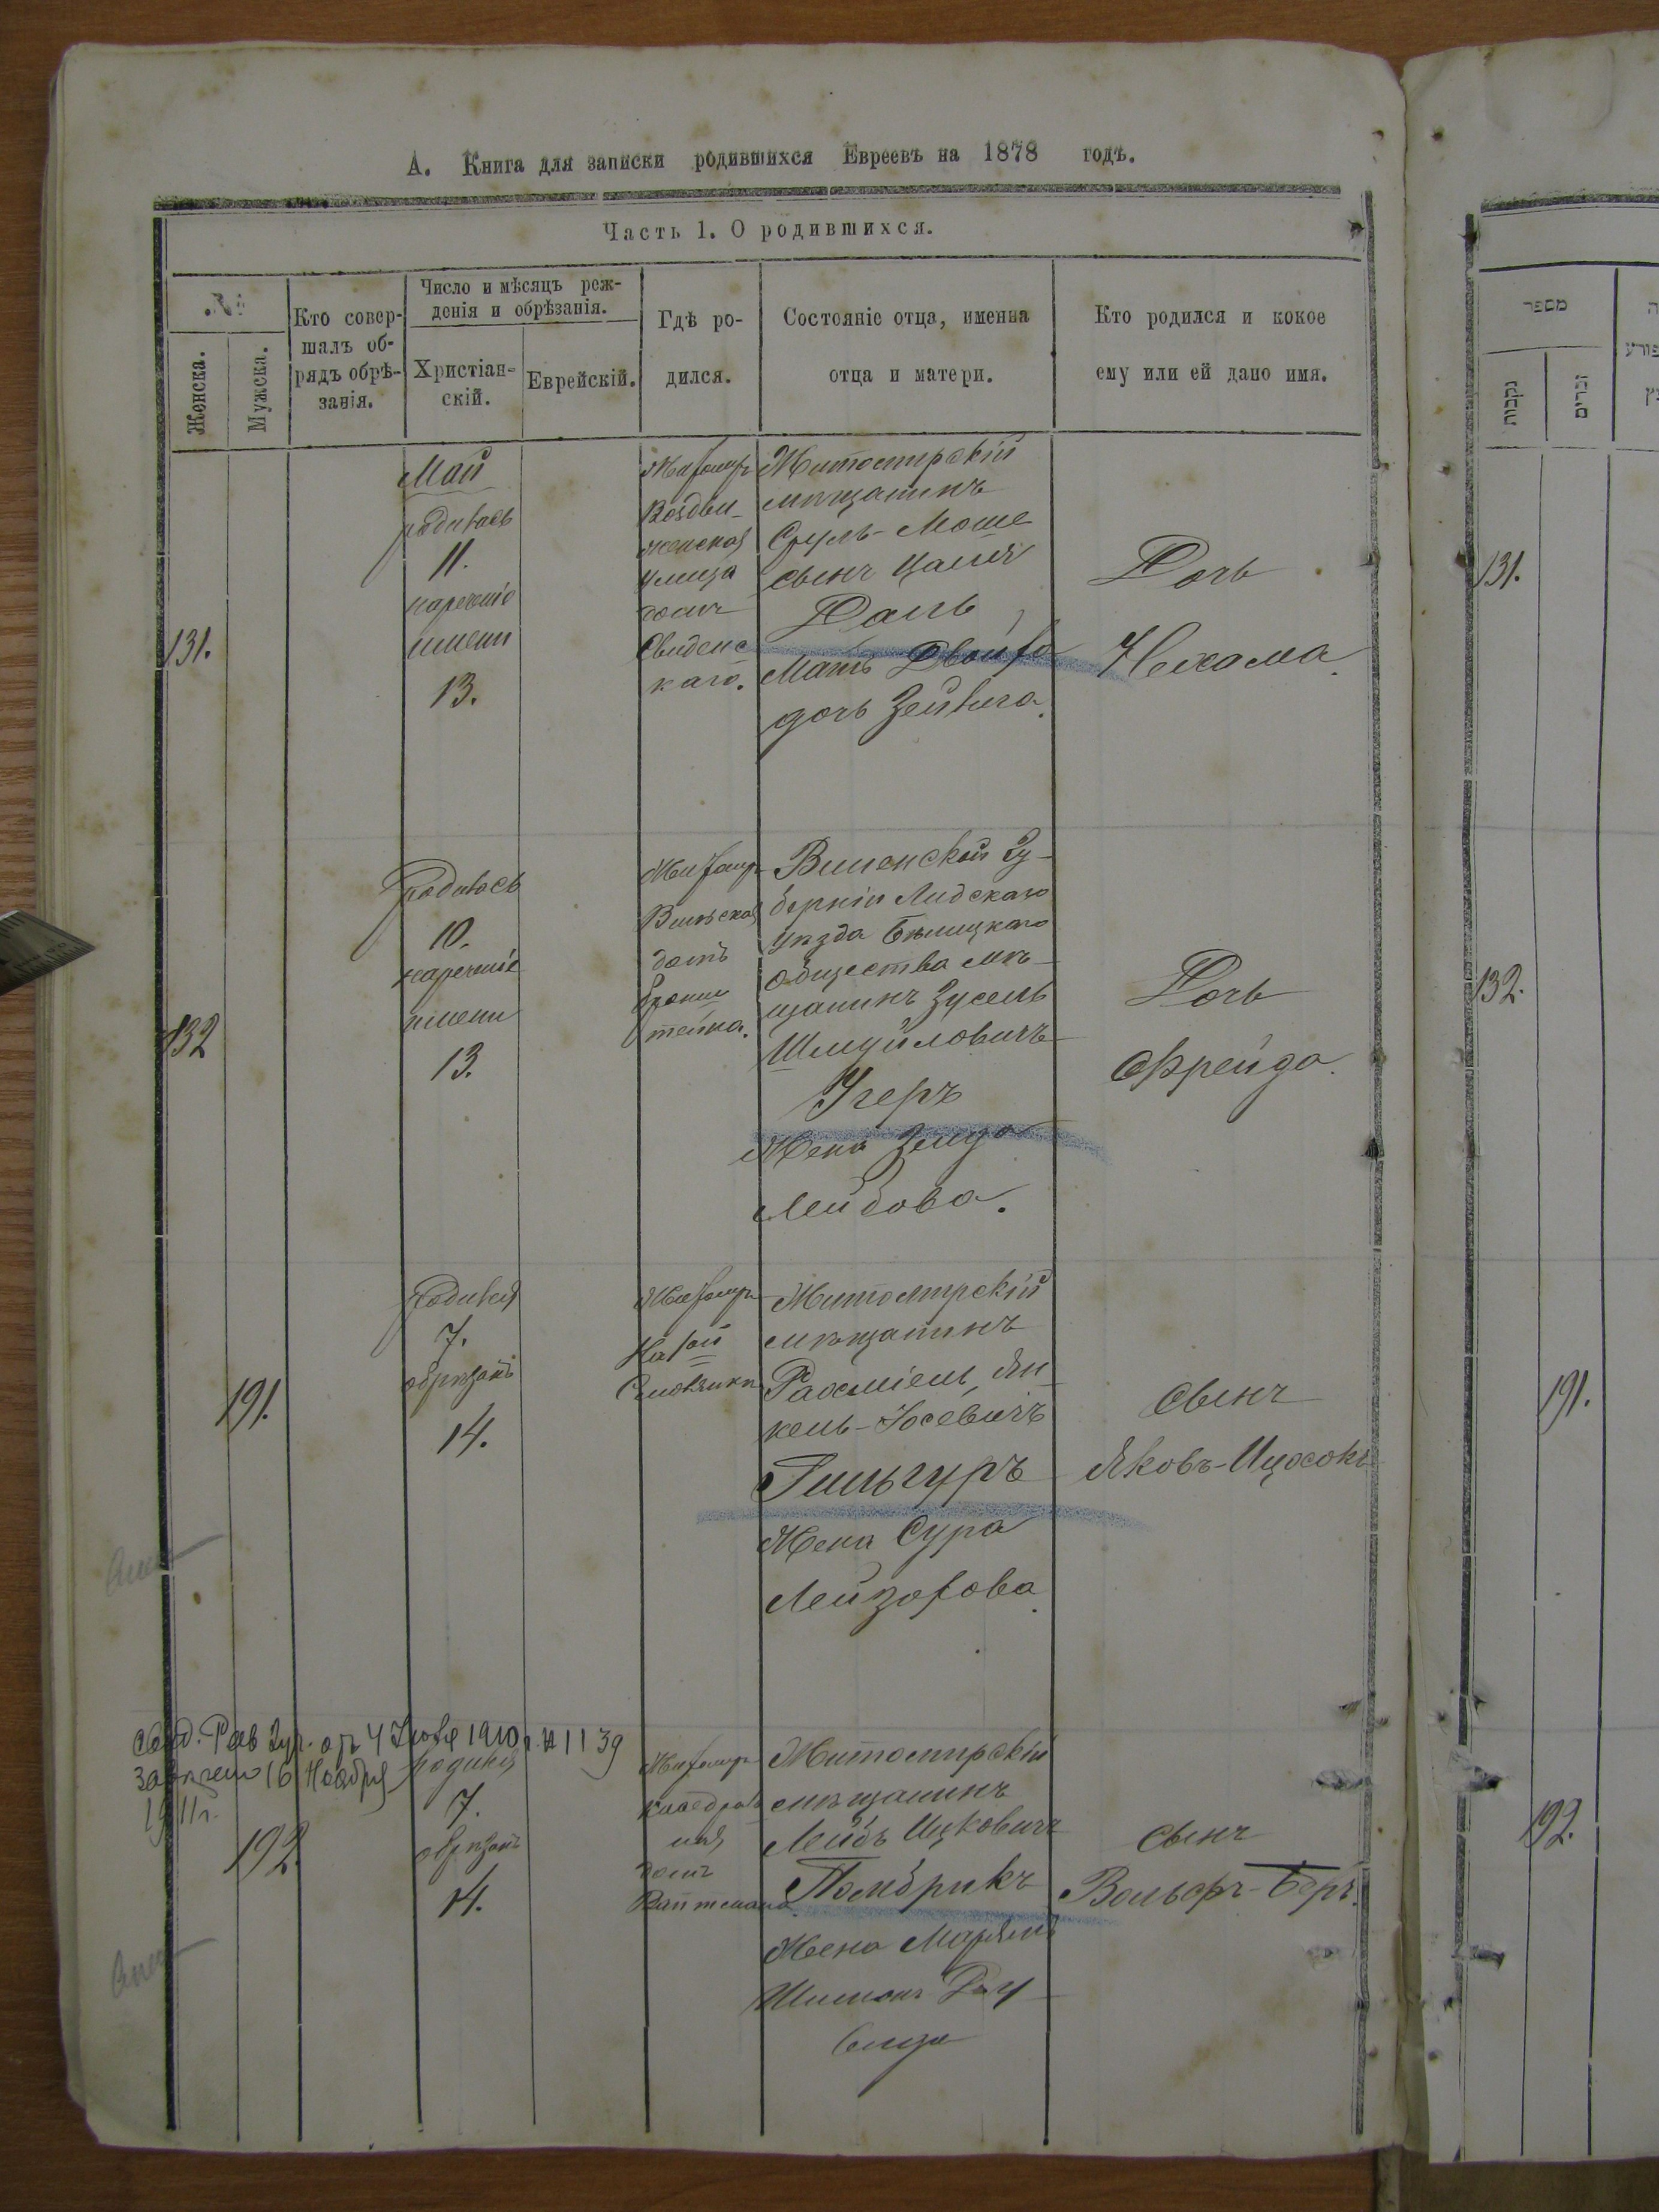 А. Книга для записки родившихся Евреевъ на 1878 годъ.
Часть 1. О родившихся.
№
Женска.
Мужска.
Кто совер-
шалъ об-
рядъ обрѣ-
занія.
Число и мѣсяцъ реж-
денія и обрѣзанія.
Христіан-
скій.
Еврейскій.
Гдѣ ро-
дился.
Состояніе отца, именна
отца и матери.
Кто родился и кокое
ему или ей дано имя.
131.
Май
родилась
11.
нареченіе
имени
13.
Житомир
Воздви-
женская
улица
домъ
Свиденс
каго.
Житомирскій
мѣщанинъ
Сруль-Моше
сынъ Цаля
Даль
Мать Двойра
дочь Зейвега.
Дочь
Нехама.
132
родилась
10.
нареченіе
имени
13.
Житомир
Вильская
домъ
Бронш
тейна.
Виленской Гу-
берніи Лидскаго
уѣзда Бѣлицкаго
общества мѣ-
щанинъ Зусель
Шмуйловичъ
Угеръ
Жена Зелда
Лейбова.
Дочь
Фрейда.
191.
родился
7.
обрѣзанъ
14.
Житомир
На
Житомирскій
мѣщанинъ
Рахміель Ян-
кель-Іосевичъ
Гильгуръ
Жена Сура
Лейзорова.
сынъ
Яковъ-Ицхокъ
Свид. Рав. от 4 1910 г. № 1139
16 Ноября
1911 г.
192.
родился
7.
обрѣзанъ
14.
Житомир
Каѳедраль
ная
домъ
Житомирскій
мѣщанинъ
Лейбъ Ицковичъ
Помбрикъ
Жена Марьямъ
Шимонъ
сынъ
Вольфъ-Беръ.
מספר
נקבות
זכרים
131.
132.
191.
192.